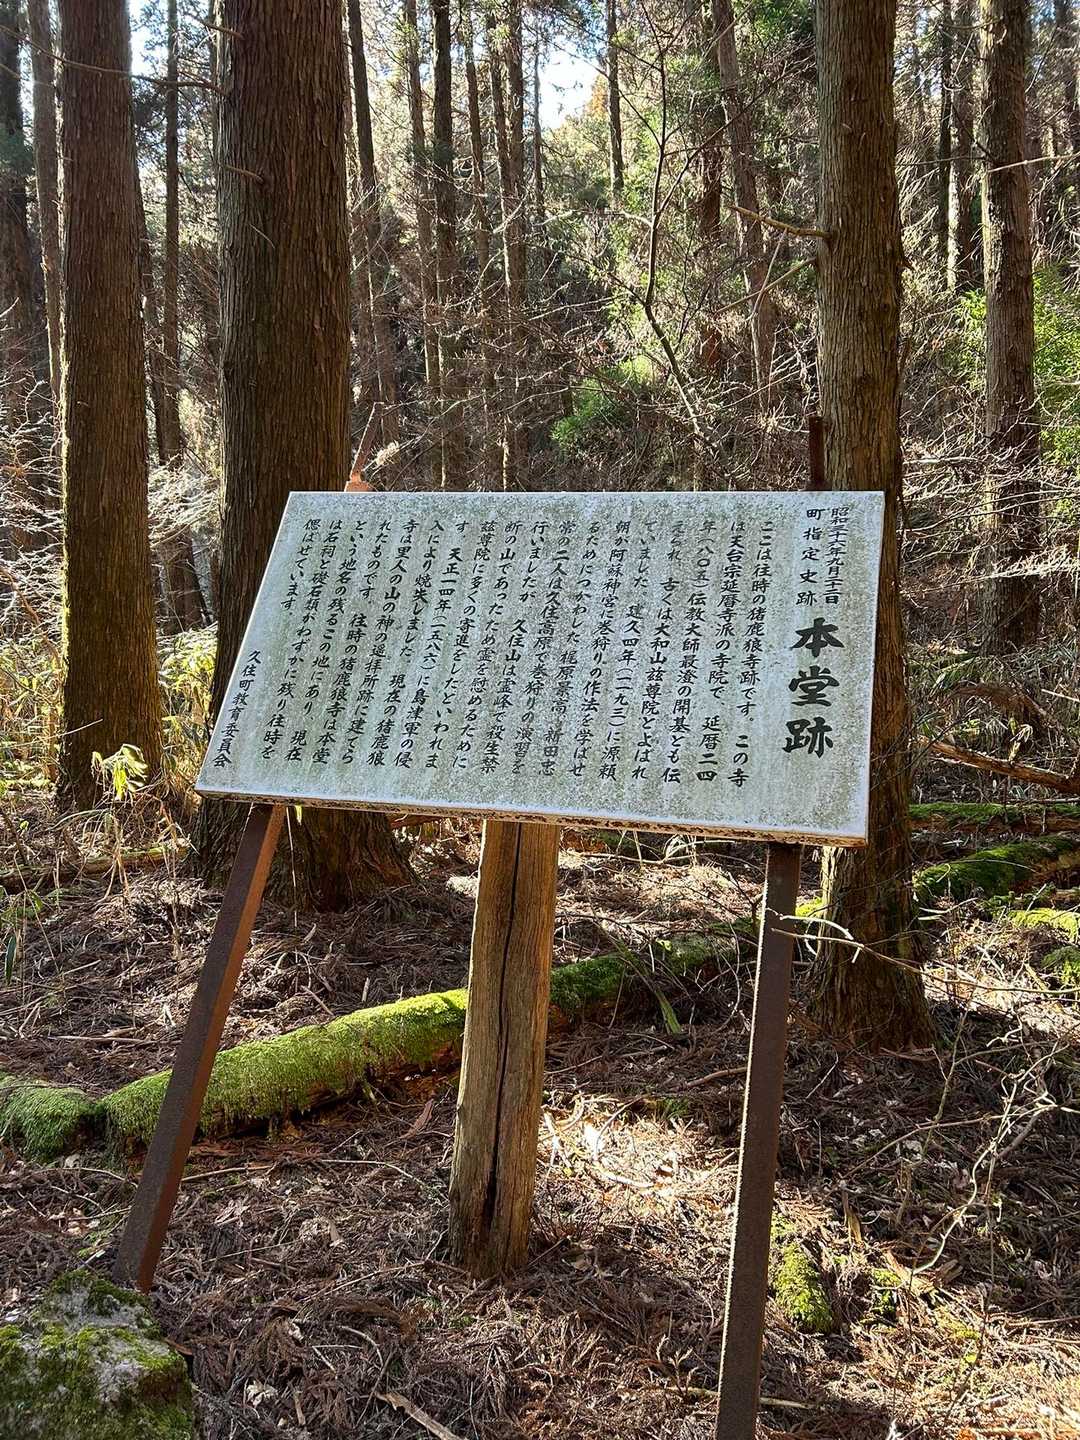 昭和三十六年九月二十二日
町指定史跡
本堂跡
ここは往時の猪鹿狼寺跡です。この寺
は天台宗延暦寺派の寺院で、延暦二四
年(八〇五)伝教大師最澄の開基とも伝
えられ、古くは大和山茲尊院とよばれ
ていました。建久四年(一一九三)に源頼
朝が阿蘇神宮に巻狩りの作法を学ばせ
るためにつかわした、梶原景高、新田忠
常の二人は久住高原で巻狩りの演習を
行いましたが、久住山は霊峰で殺生禁
断の山であったため霊を慰めるために
茲尊院に多くの寄進をしたといわれま
す。天正一四年(一五八六)に島津軍の侵
入により焼失しました。現在の猪鹿狼
寺は里人の山の神の遥拝所跡に建てら
れたものです。往時の猪鹿狼寺は本堂
という地名の残るこの地にあり、現在
は石祠と礎石類がわずかに残り往時を
偲ばせています。
久住町教育委員会